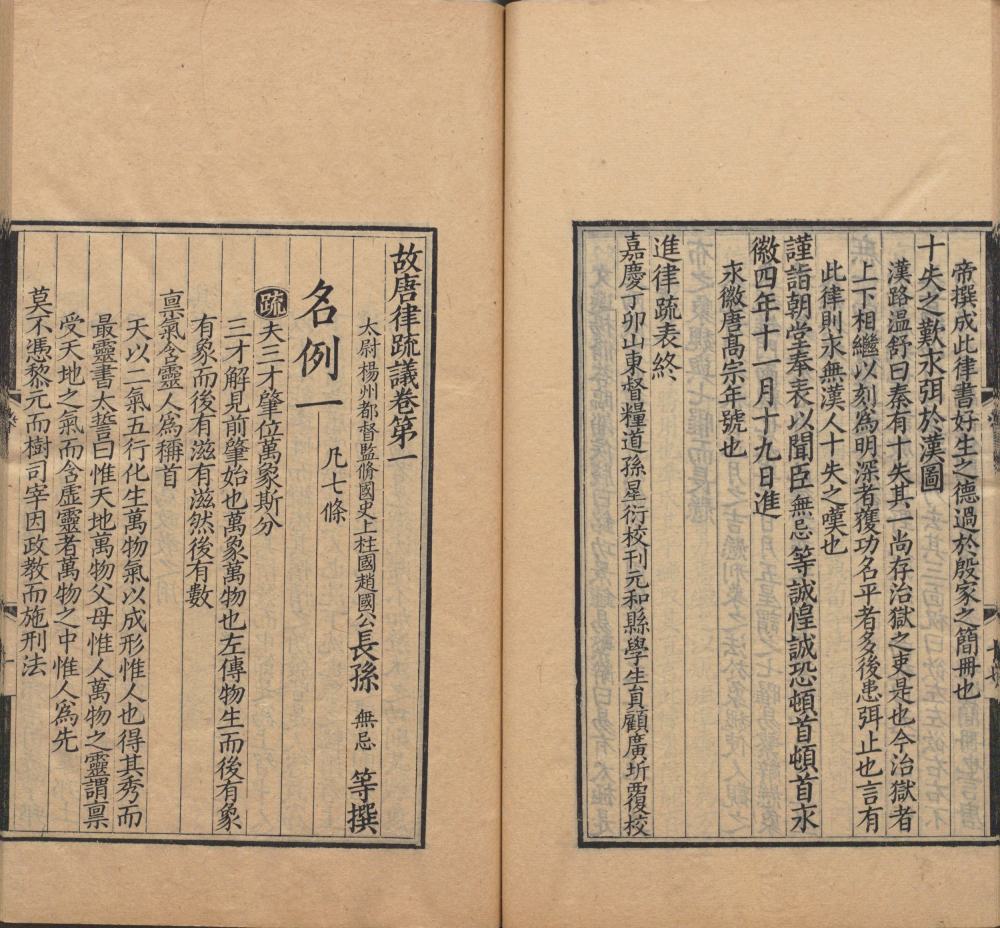 帝撰成此律書好生之德過於殷家之簡冊也
十失之歎永弭於漢圖
漢路溫舒曰秦有十失其一尚存治獄之吏是也今治獄者
上下相繼以刻爲明深者獲功名平者多後患弭止也言有
此律則永無漢人十失之嘆也
謹詣朝堂奉表以聞臣無忌等誠惶誠恐頓首頓首永
徽四年十一月十九日進
永徽唐高宗年號也
進律疏表終
嘉慶丁卯山東督糧道孫星衍校刊元和縣學生員顧廣圻覆校
故唐律疏議卷第一
太尉揚州都督監脩國史上柱國趙國公長孫無忌等撰
名例一 凡七條
疏夫三才肇位萬象斯分
三才解見前肇始也萬象萬物也左傳物生而後有象
有象而後有滋有滋然後有數
禀氣含靈人爲稱首
天以二氣五行化生萬物氣以成形惟人也得其秀而
最靈書大誓曰惟天地萬物父母惟人萬物之靈謂禀
受天地之氣而含虛靈者萬物之中惟人爲先
莫不憑黎元而樹司宰因政教而施刑法